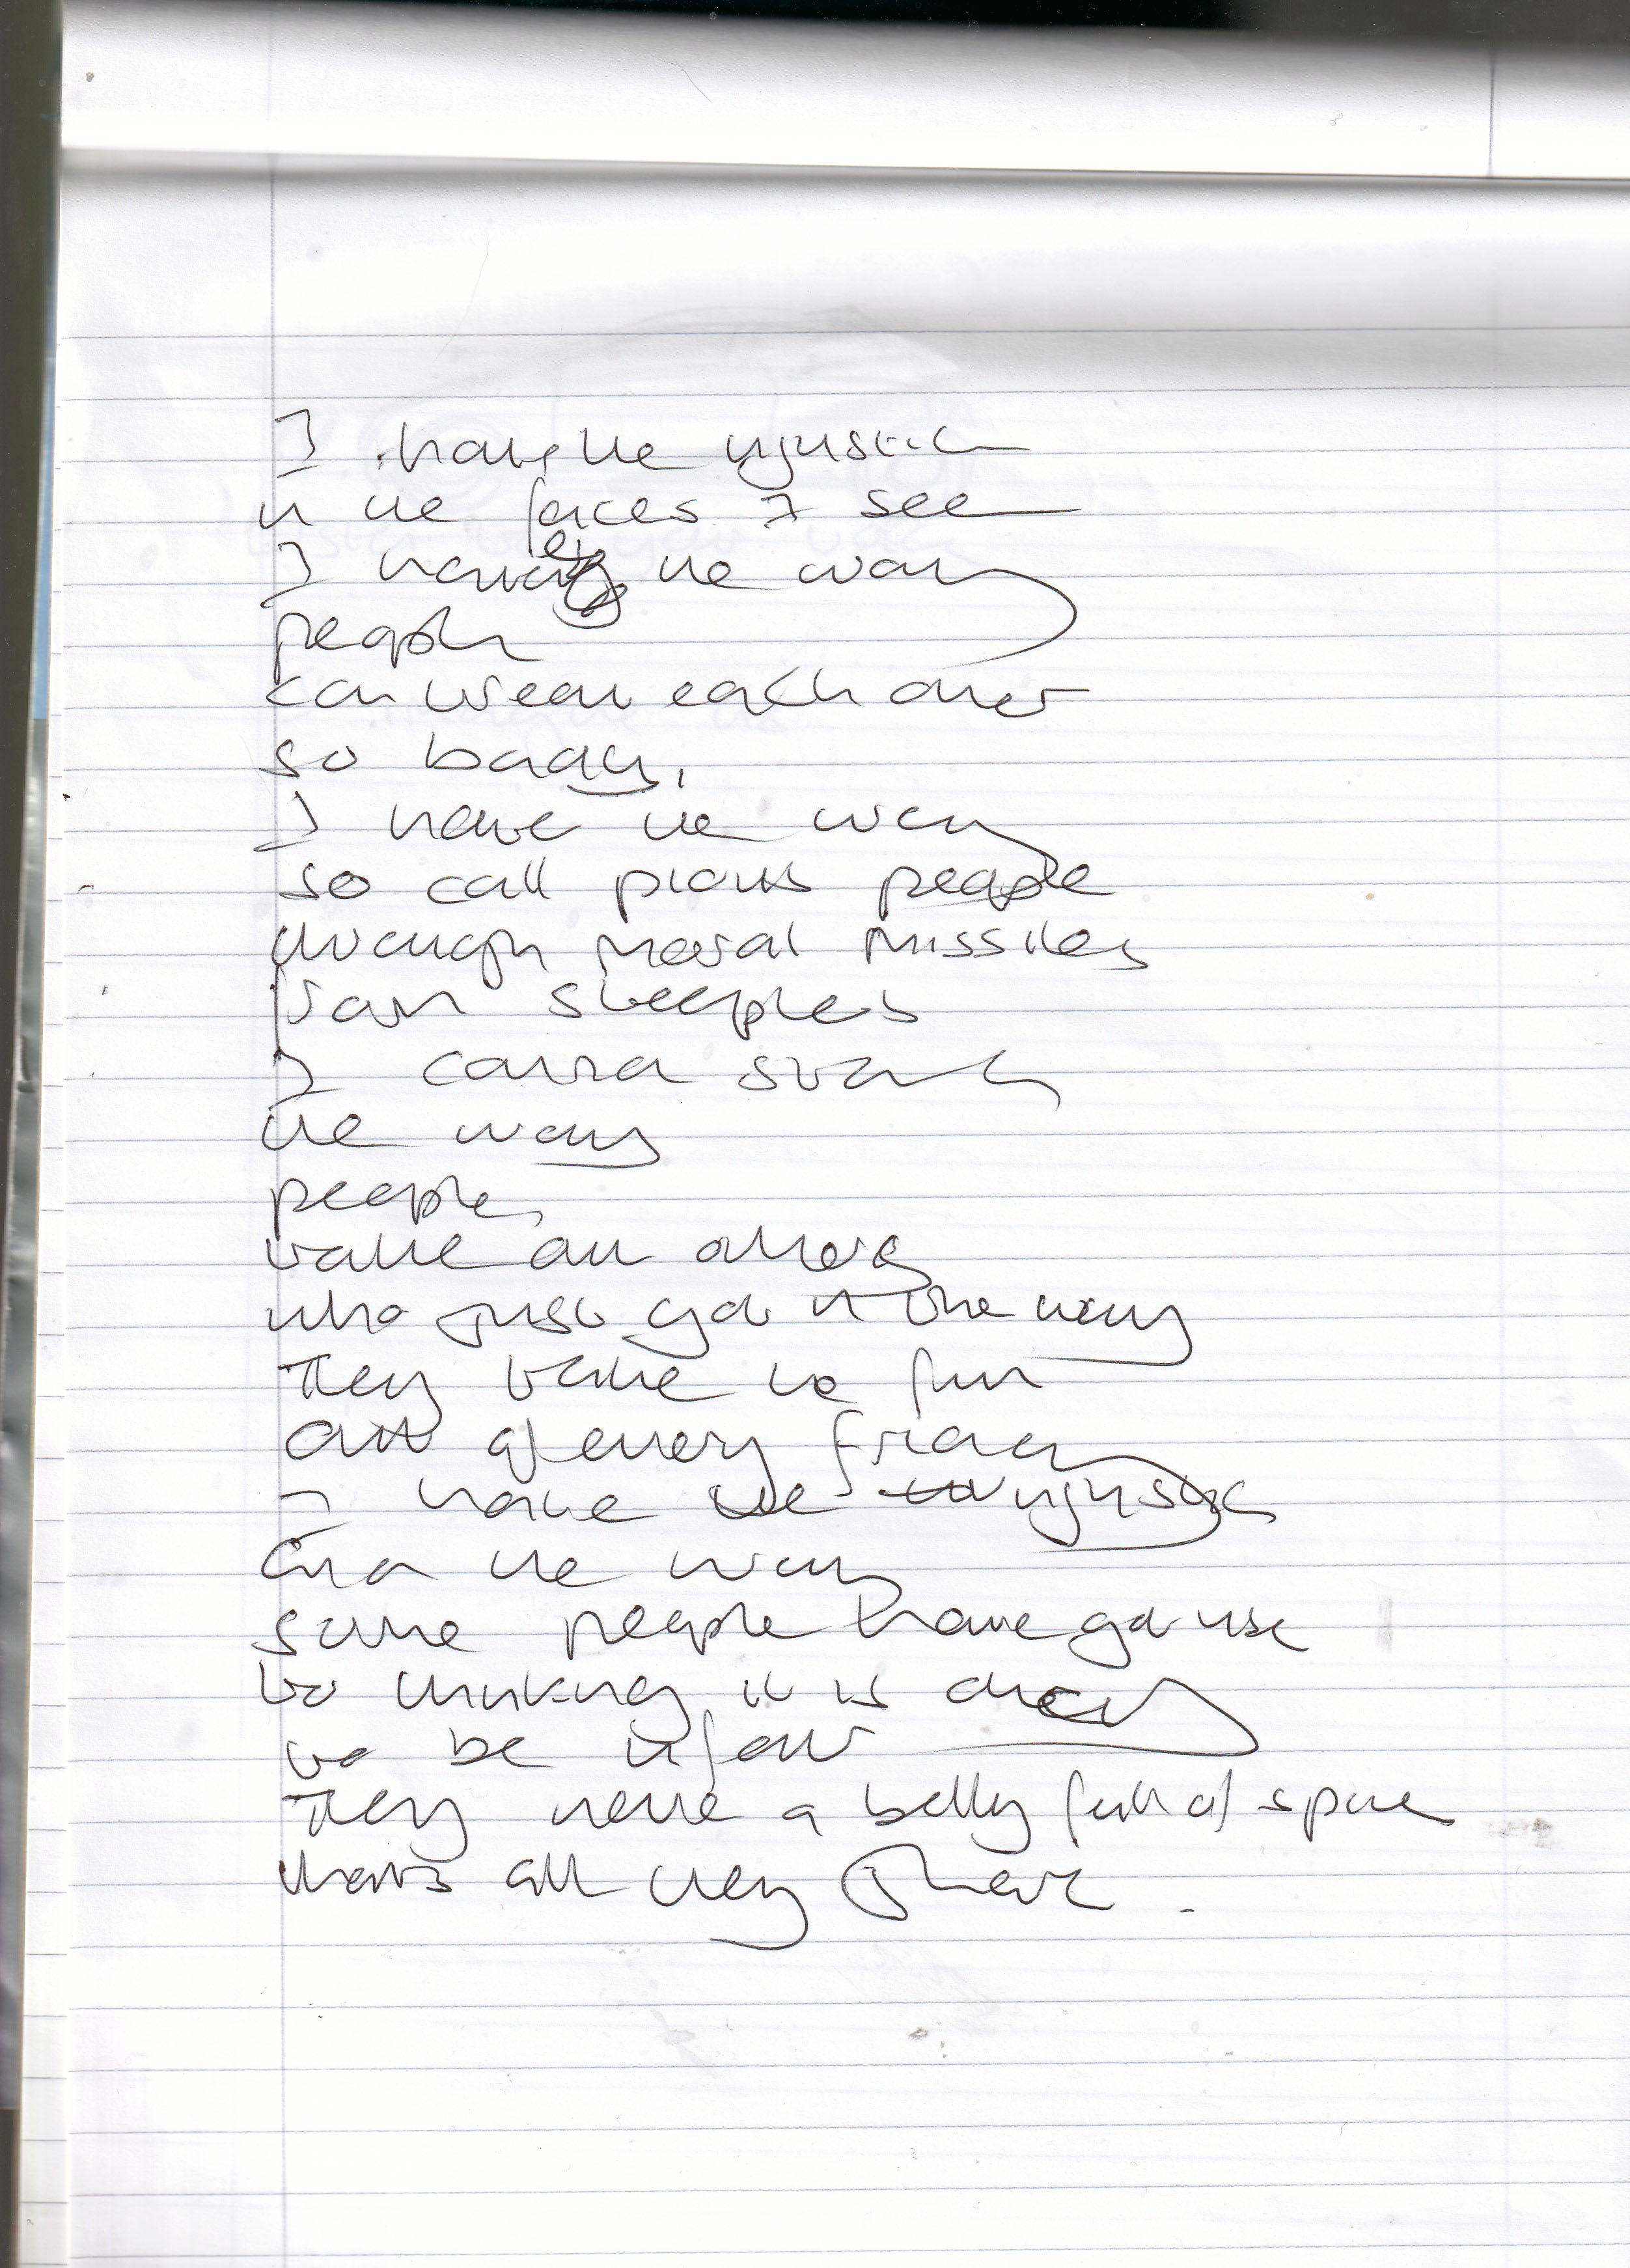 I hate the injustice
in the faces I see
I hate the way
people
can treat each other
so badly.
I hate the way
so call pious people
through moral missiles
from steeples
I cannot stand
the way
people
take an others
who just got in the way
They take the fun
out of every
I hate the injustice
and the way
some people have got use
to thinking it is okay
to be unfair
They have a belly full of spite
that's all they have.